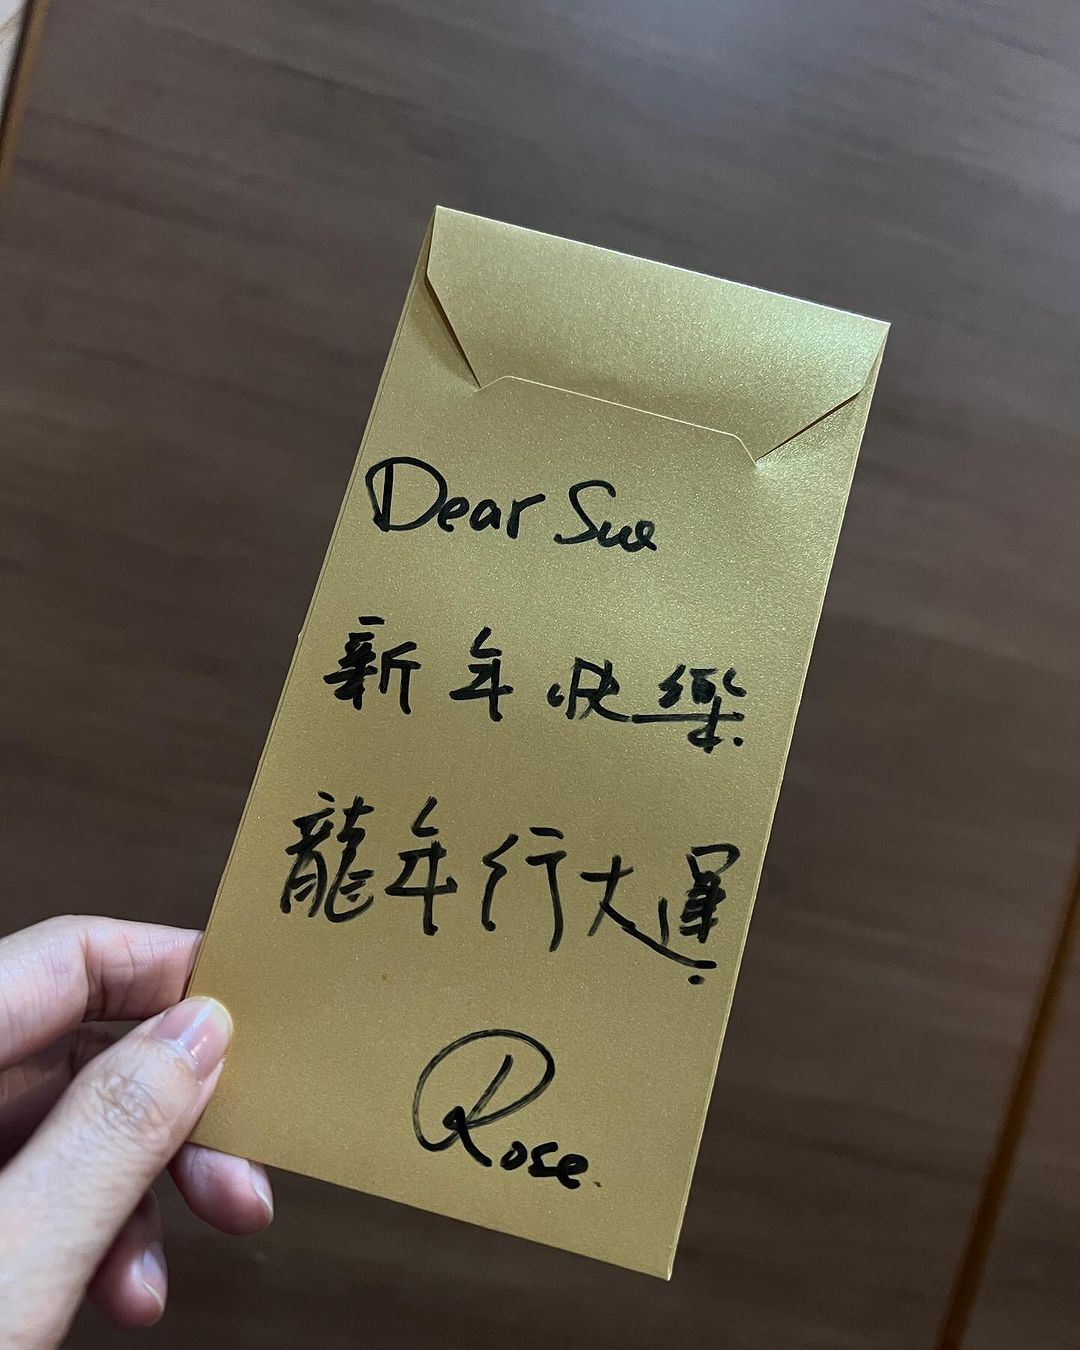 Dear Sue
新年快樂
龍年行大運
Rose.